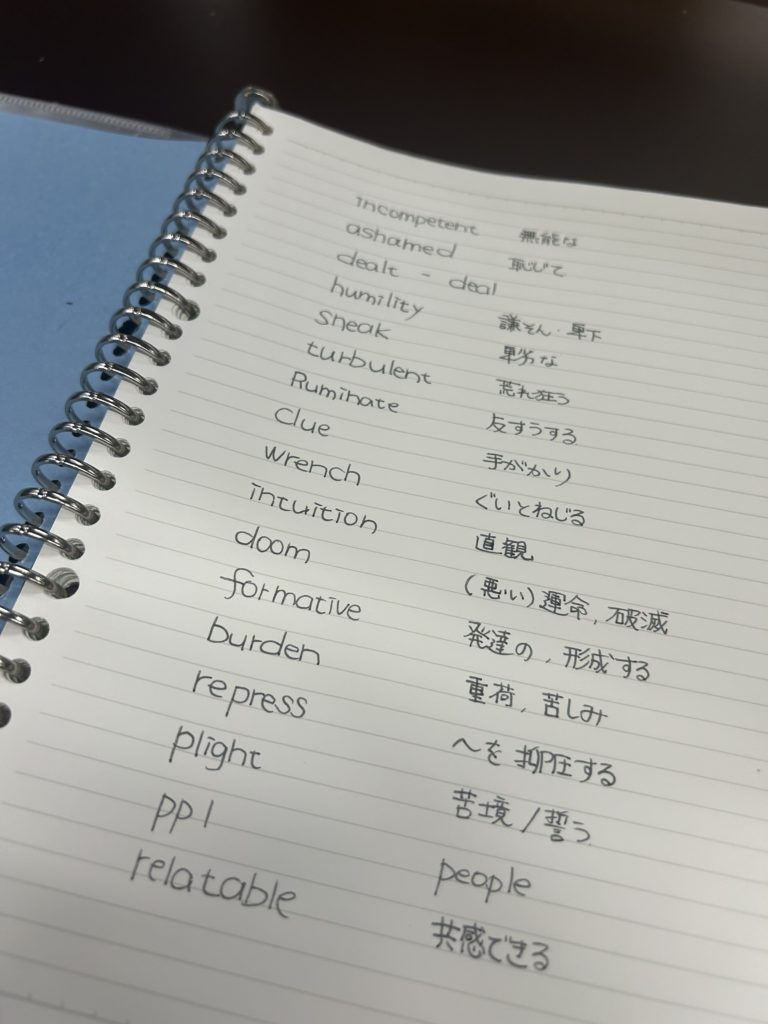 incompetent 無能な
ashamed 恥じて
dealt - deal
humility 謙そん・卑下
sneak 卑劣な
turbulent 荒れ狂う
Ruminate 反すうする
clue 手がかり
wrench ぐいとねじる
intuition 直観
doom (悪い)運命, 破滅
formative 発達の, 形成する
burden 重荷, 苦しみ
repress 〜を抑圧する
plight 苦境/誓う
ppl people
relatable 共感できる